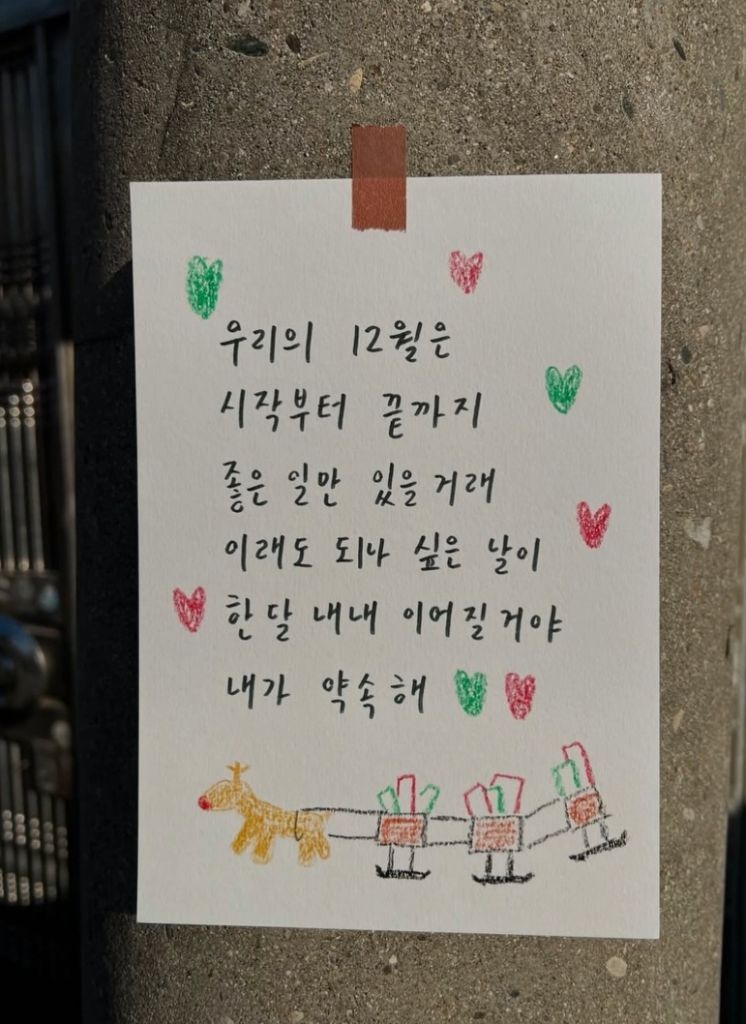 우리의 12월은
시작부터 끝까지
좋은 일만 있을거래
이래도 되나 싶은 날이
한달 내내 이어질거야
내가 약속해